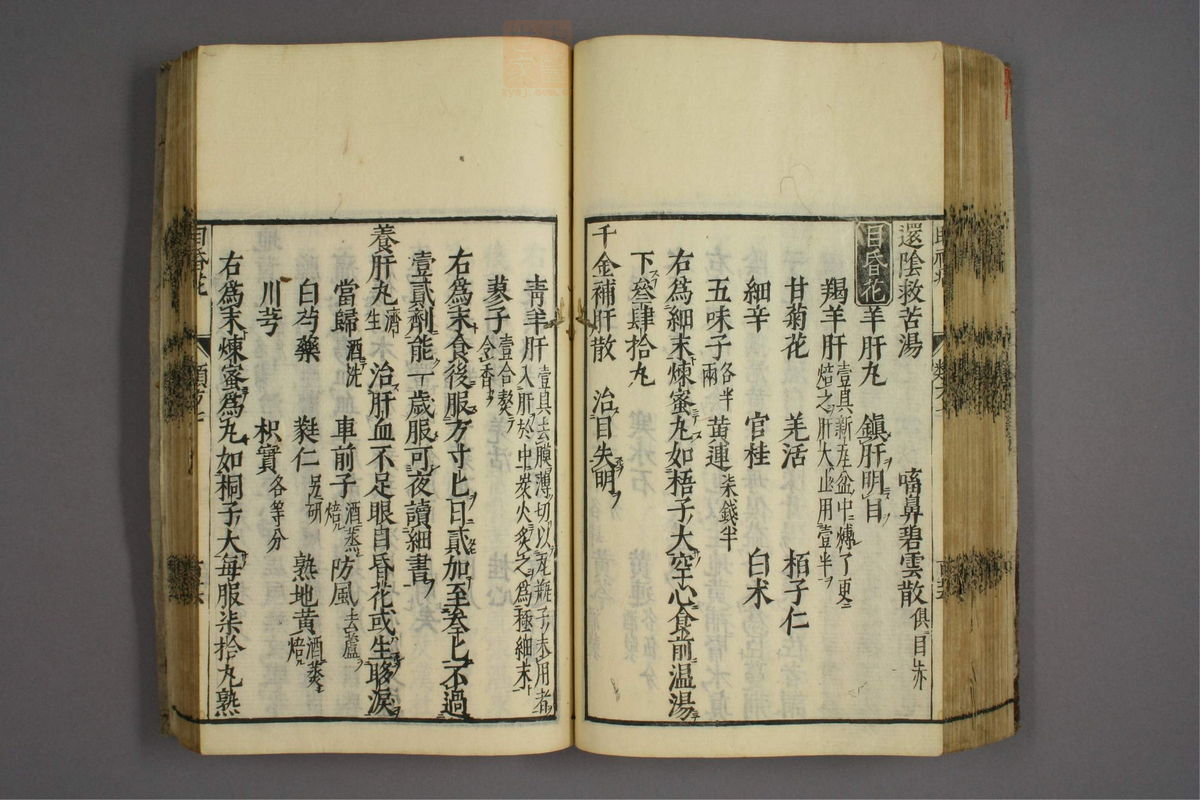 還陰救苦湯　嗃鼻碧雲散俱目赤
目昏花　羊肝丸　鎮肝明目
羯羊肝壹具新瓦盆中煿了更焙之肝大止用壹半
甘菊花　羌活　栢子仁
細辛　官桂　白朮
五味子各半兩　黄連柒錢半
右為細末煉蜜丸如梧子大空心食前温湯
下叄肆拾丸
千金補肝散　治目失明
青羊肝壹具去膜薄切以瓦瓶子未用者入肝於中炭火炙之為極細末
蓼子壹合熬令香
右為末食後服方寸匕日貳加至叄匕不過
壹貳劑能一歲服可夜讀細書
養肝丸濟生　治肝血不足眼目昏花或生眵淚
當歸酒洗　車前子酒蒸焙　防風去蘆
白芍藥　蕤仁另研　熟地黄酒蒸焙
川芎　枳實各等分
右為末煉蜜為丸如桐子大每服柒拾丸熟
目昏花　類方七